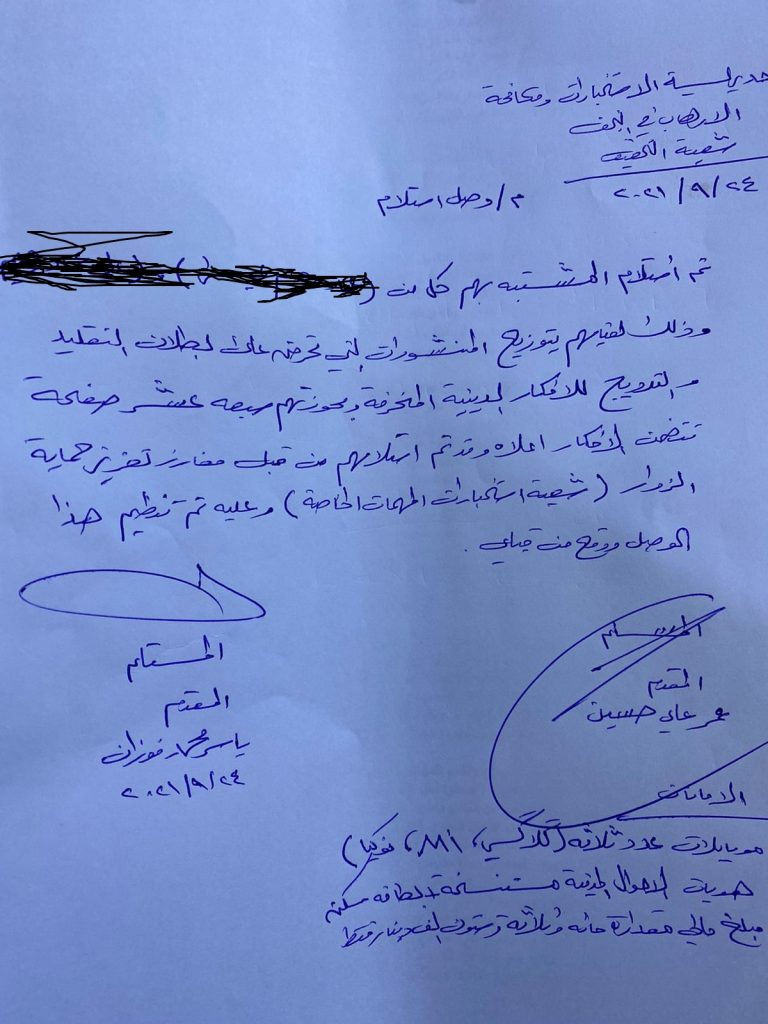 مديرية الاستخبارات ومكافحة
الارهاب في النجف
شعبة التحقيق
٢٠٢١/٩/٢٤
م/ وصل استلام
تم استلام المشتبه بهم كل من (
وذلك لقيامهم بتوزيع المنشورات التي تحرض على بطلان التقليد
والترويج للافكار الدينية المنحرفة وبحوزتهم سبعه عشر صفحة
تتضمن الافكار اعلاه وقد تم استلامهم من قبل مفارز تعزيز حماية
الزوار (شعبة استخبارات المهمات الخاصة) وعليه تم تنظيم هذا
الوصل ووقع من قبلي.
المستلم
المقدم
ياسر محمد فوزان
٢٠٢١/٩/٢٤
المقدم
عمر علي حسين
الامانات
موبايلات عدد ثلاثه (كلاكسي، نوكيا)
هويات الاحوال المدنية مستنسخة بطاقه سكن
مبلغ مالي مقداره مائه وثلاثة وستون الف دينار فقط